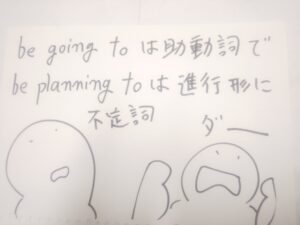 be going to は助動詞で
be planning to は進行形に
不定詞
ダー